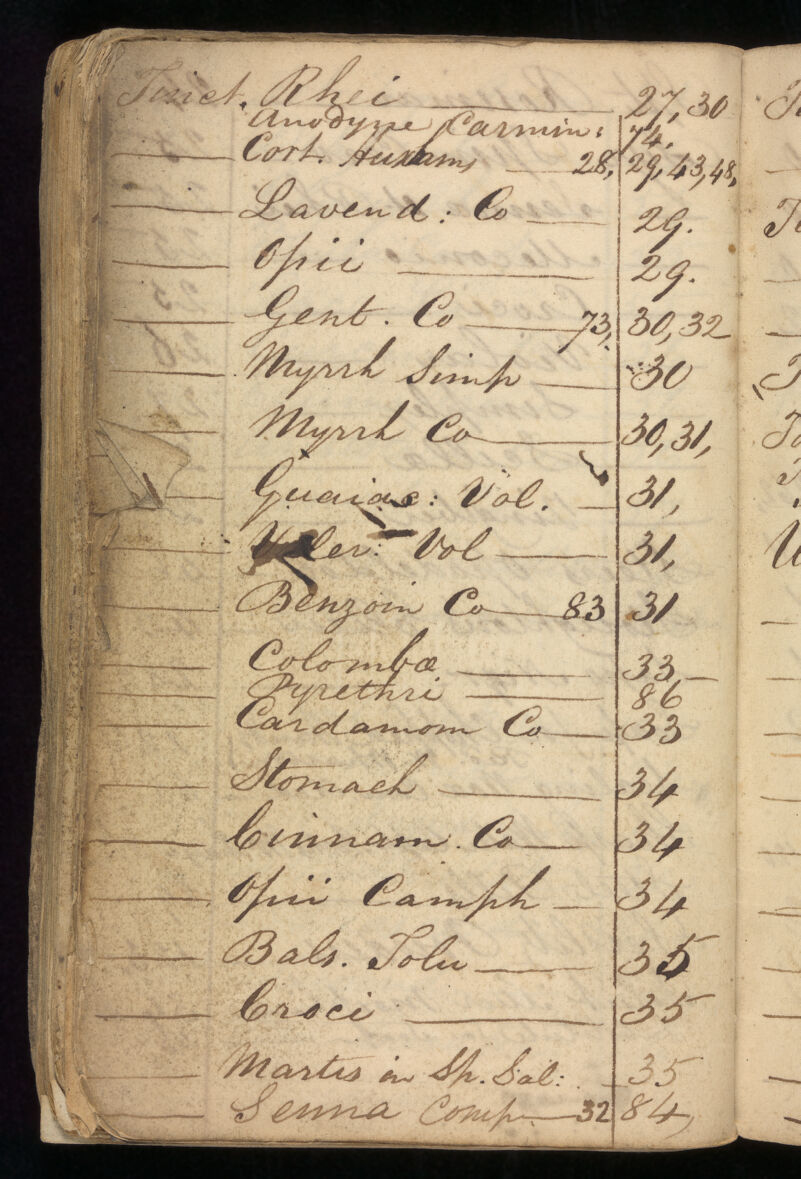 Tinct. Rhei 27, 30
Anodyne Carmin: 74.
Cort. Huxams 28, 29, 43, 48,
Lavend: Co 29.
Opii 29.
Gent. Co 73, 30, 32
Myrrh Simp 30
Myrrh Co 30, 31,
Guaiac: Vol. 31,
Valer: Vol 31,
Benzoin Co 83 31
Colombæ 33
Pyrethri 86
Cardamom Co 33
Stomach 34
Cinnam. Co 34
Opii Camph 34
Bals. Tolu 35
Croci 35
Martis in Sp. Sal: 35
Senna Comp 32 84,